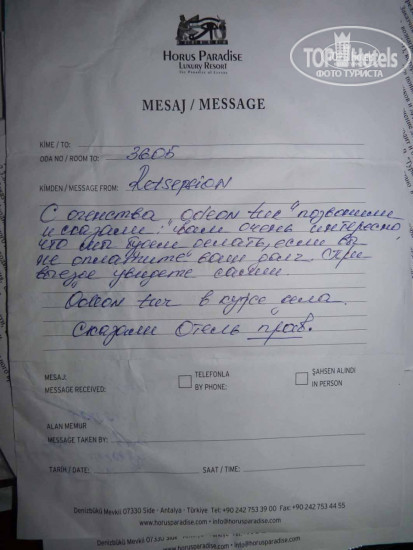 TOPHotels
ФОТО ТУРИСТА
HORUS PARADISE
LUXURY RESORT
The Paradise of Europe
MESAJ / MESSAGE
KİME / TO:
ODA NO / ROOM TO: 3605
KİMDEN / MESSAGE FROM: Retsepcion
С агенства "odeon tur" позвонили
и сказали: вам очень интересно,
что мы будем делать, если вы
не оплатите ваш долг, при
выезде увидете сами
"Odeon tur" в курсе дела.
Сказали Отель прав.
MESAJ:
MESSAGE RECEIVED:
TELEFONLA
BY PHONE:
ŞAHSEN ALINDI
IN PERSON
ALAN MEMUR
MESSAGE TAKEN BY:
TARİH / DATE:
SAAT / TIME:
Denizbükü Mevkii 07330 Side - Antalya - Türkiye Tel: +90 242 753 39 00 Fax: +90 242 753 44 55
www.horusparadise.com - info@horusparadise.com